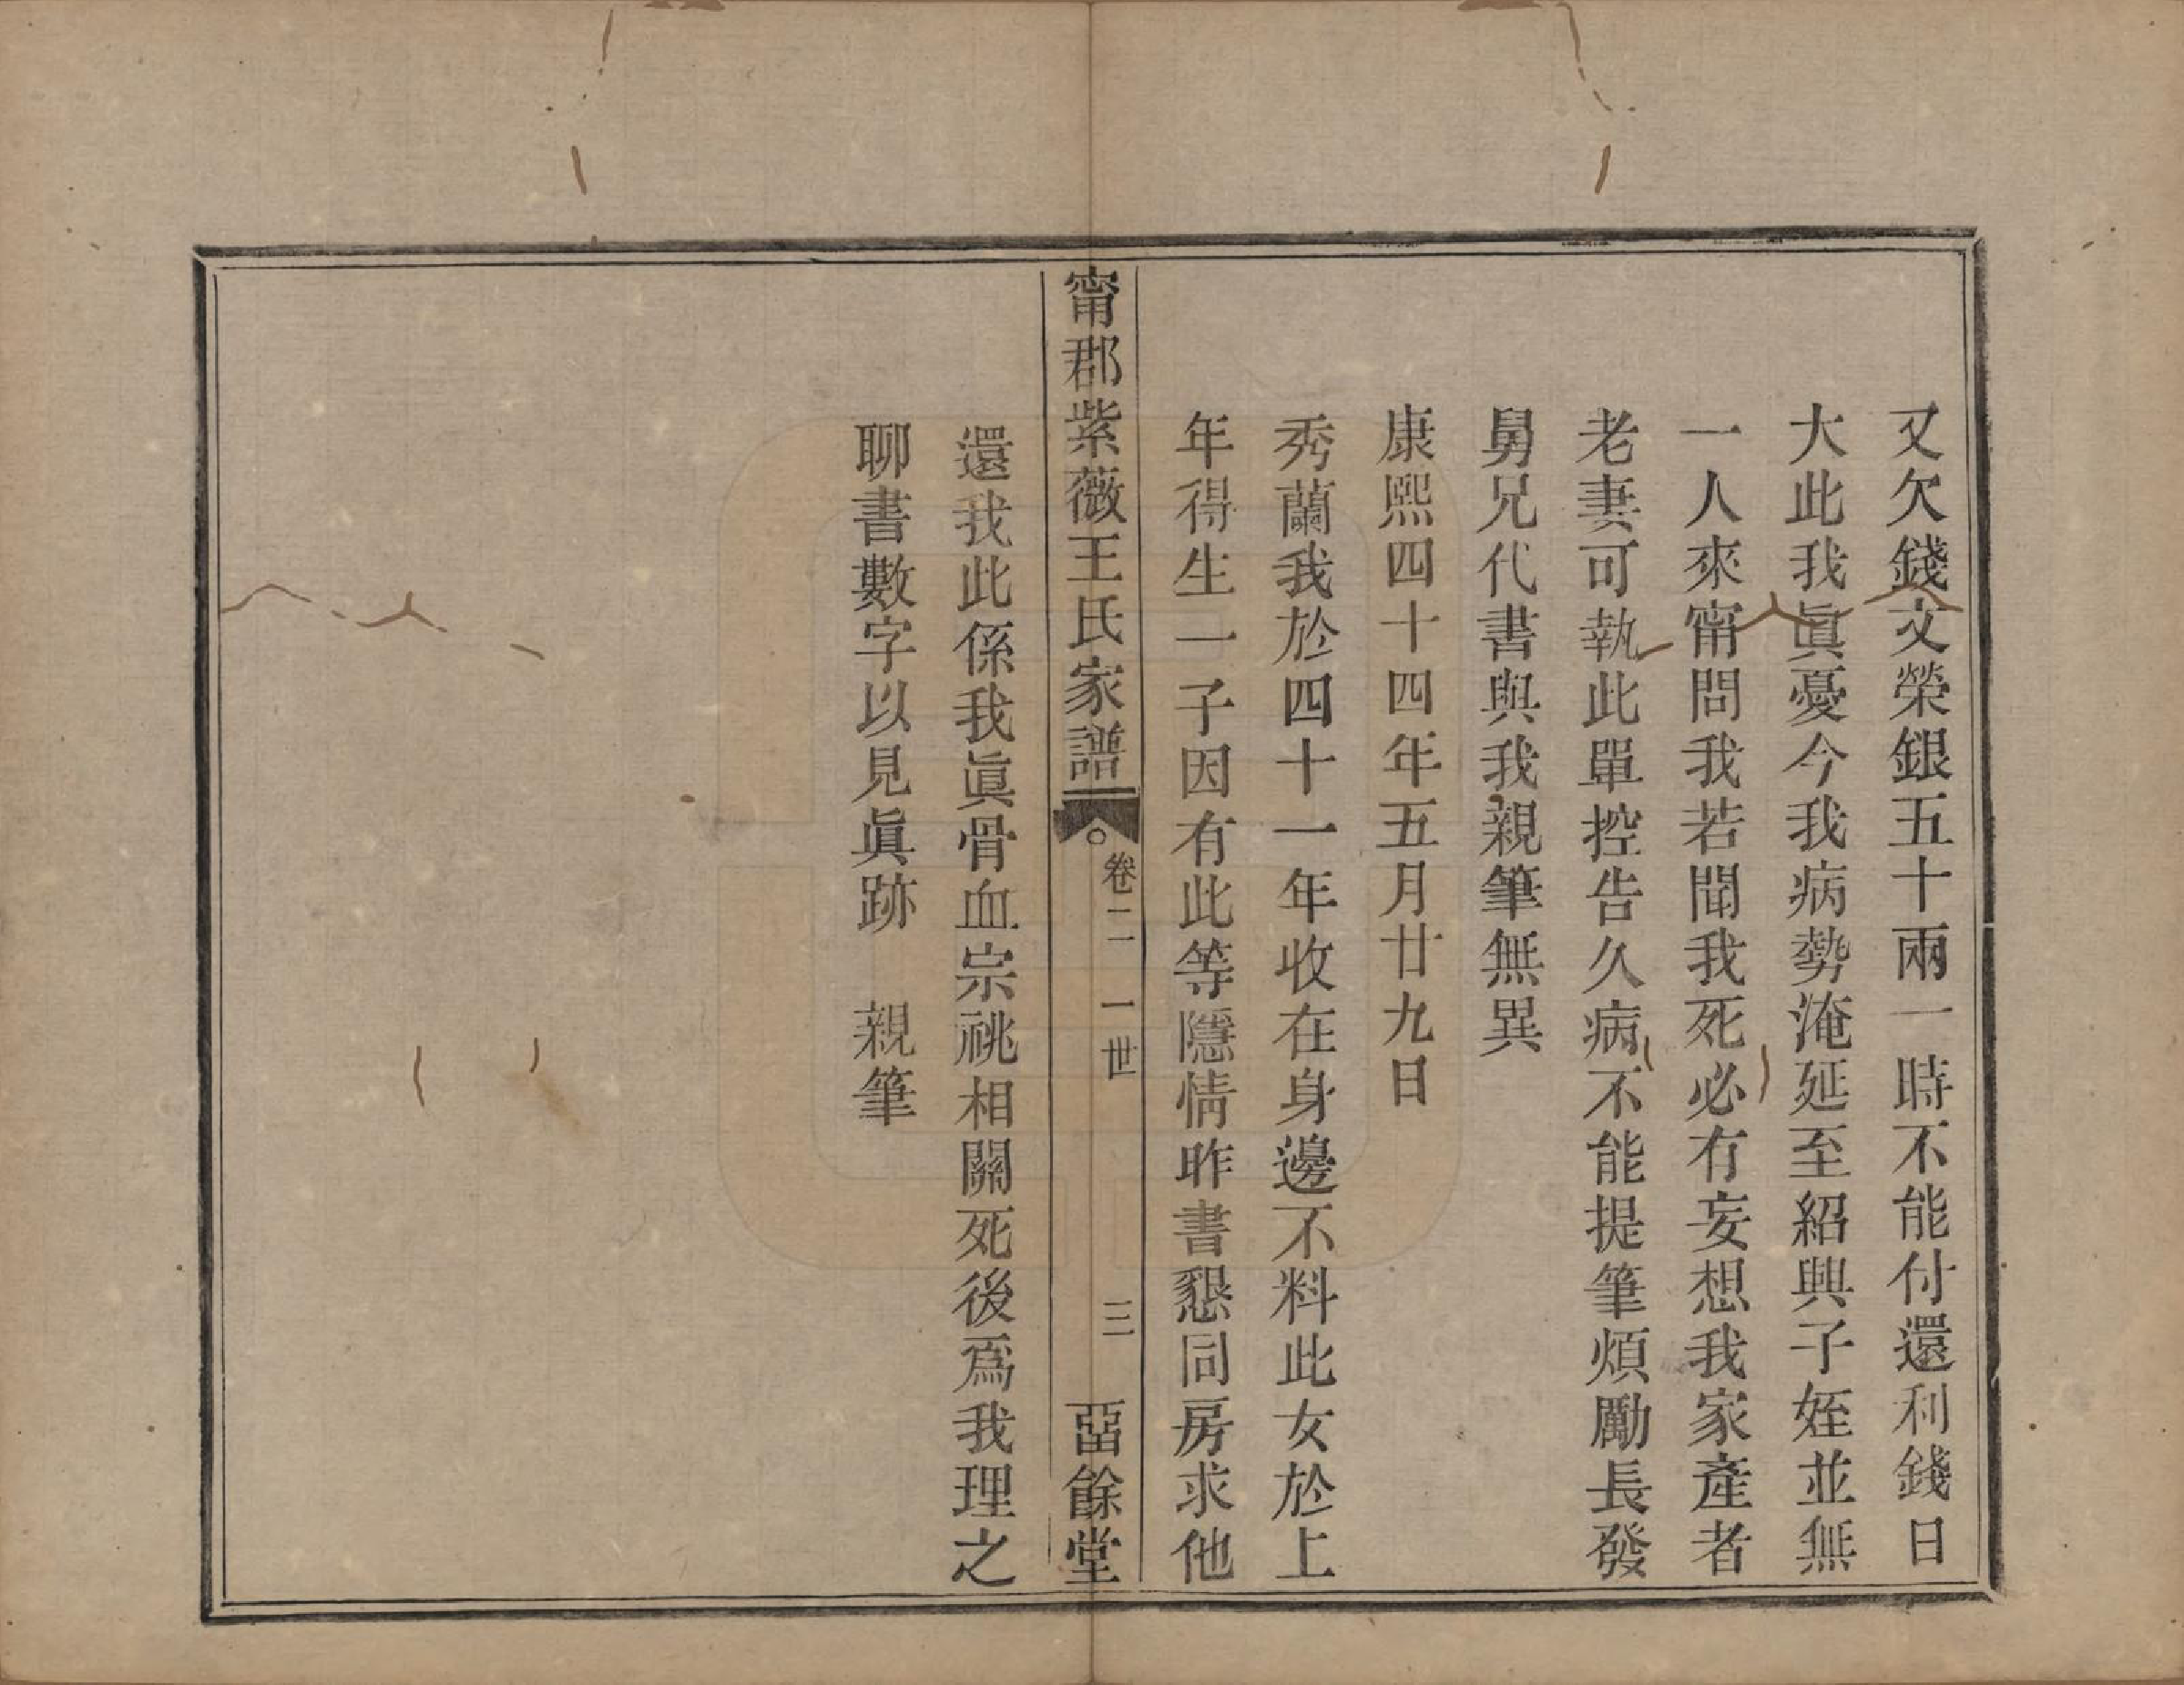 又欠錢文榮銀五十兩一時不能付還利錢日
大此我眞憂今我病勢淹延至紹興子姪並無
一人來甯問我若聞我死必有妄想我家產者
老妻可執此單控告久病不能提筆煩勵長發
舅兄代書與我親筆無異
康熙四十四年五月廿九日
秀蘭我於四十一年收在身邊不料此女於上
年得生一子因有此等隱情昨書懇同房求他
甯郡紫薇王氏家譜 卷二 一世 三 畱餘堂
還我此係我眞骨血宗祧相關死後爲我理之
聊書數字以見眞跡 親筆